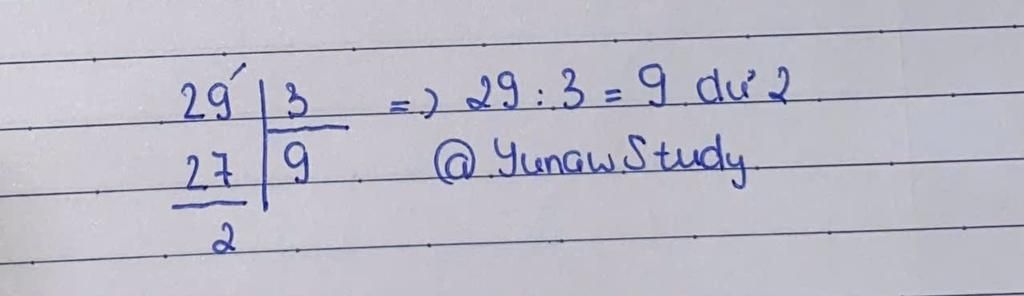 29 | 3 => 29 : 3 = 9 dư 2
27 | 9 @YunawStudy
2